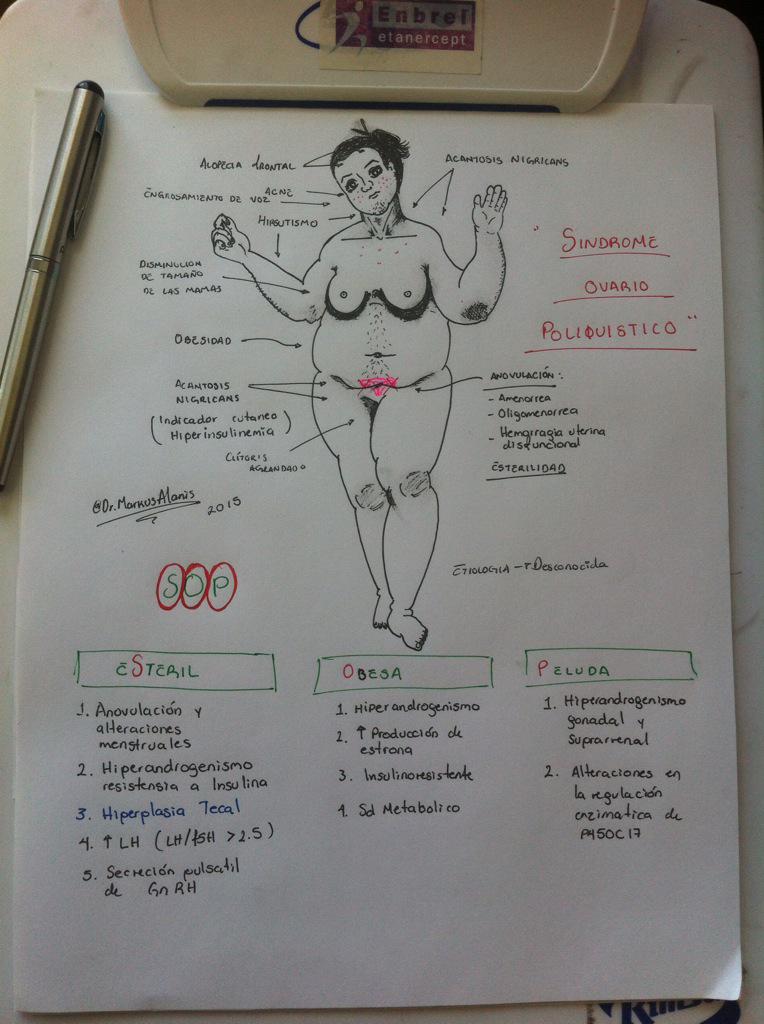 Enbrel
etanercept
Alopecia frontal
Acantosis Nigricans
Acné
Engrosamiento de voz
Hirsutismo
"Sindrome
Ovario
Poliquistico"
Disminucion
de tamaño
de las mamas
Obesidad
Acantosis
Nigricans
(Indicador cutaneo
Hiperinsulinemia)
Clitoris
agrandado
Anovulación:
- Amenorrea
- Oligomenorrea
- Hemorragia uterina
disfuncional
Esterilidad
@Dr.MarkusAlanis
2015
Etiologia → Desconocida
SOP
eSteril
1. Anovulación y
alteraciones
menstruales
2. Hiperandrogenismo
resistensia a Insulina
3. Hiperplasia Tecal
4. ↑ LH (LH/fSH > 2.5)
5. Secreción pulsatil
de GnRH
Obesa
1. Hiperandrogenismo
2. ↑ Producción de
estrona
3. Insulinoresistente
4. Sd Metabolico
Peluda
1. Hiperandrogenismo
gonadal y
Suprarrenal
2. Alteraciones en
la regulación
enzimatica de
P450C17